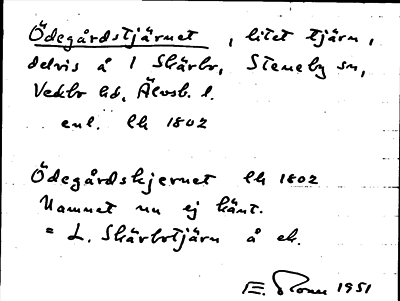 Ödegårdstjärnet, litet tjärn,
delvis å 1 Skärbo, Steneby sn,
Vedbo hd, Älvsb. l.
enl. lh 1802
Ödegårdskjernet lh 1802
Namnet nu ej känt.
= L. Skärbotjärn å ek.
E. 1951